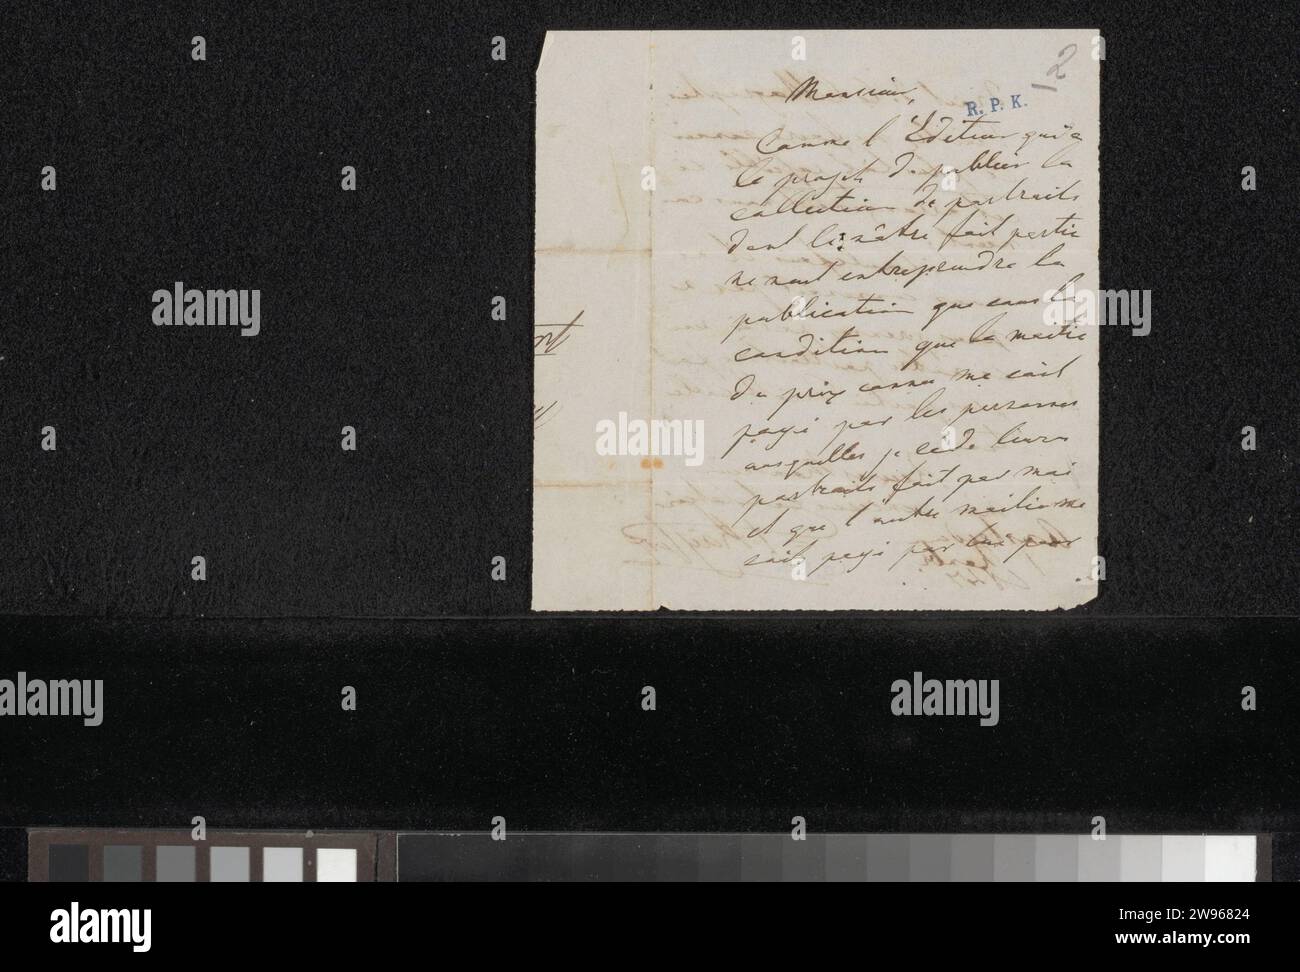 2
R. P. K.
Monsieur,
Comme l'Editeur qui a
le projet de publier la
collection de portraits
dont le vôtre fait partie
ne veut entreprendre la
publication que sous la
condition que la moitié
du prix convenu me soit
payé par les personnes
auxquelles je cède leurs
portraits fait par moi
et que l'autre moitié me
soit payé par eux pour
alamy
Image ID: 2W96824
www.alamy.com